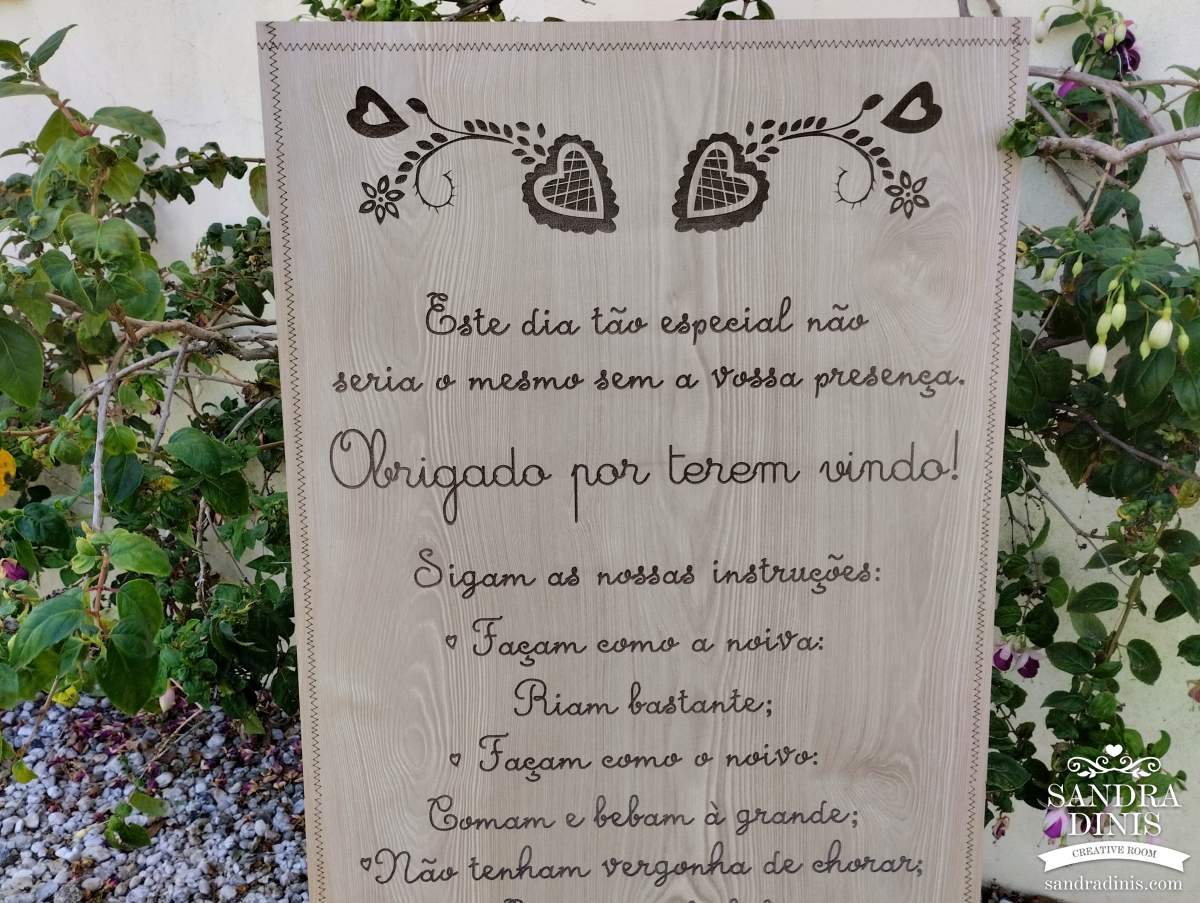 Este dia tão especial não
seria o mesmo sem a vossa presença.
Obrigado por terem vindo!
Sigam as nossas instruções:
Façam como a noiva:
Riam bastante;
Façam como o noivo:
Comam e bebam à grande;
Não tenham vergonha de chorar;
SANDRA
DINIS
CREATIVE ROOM
sandradinis.com